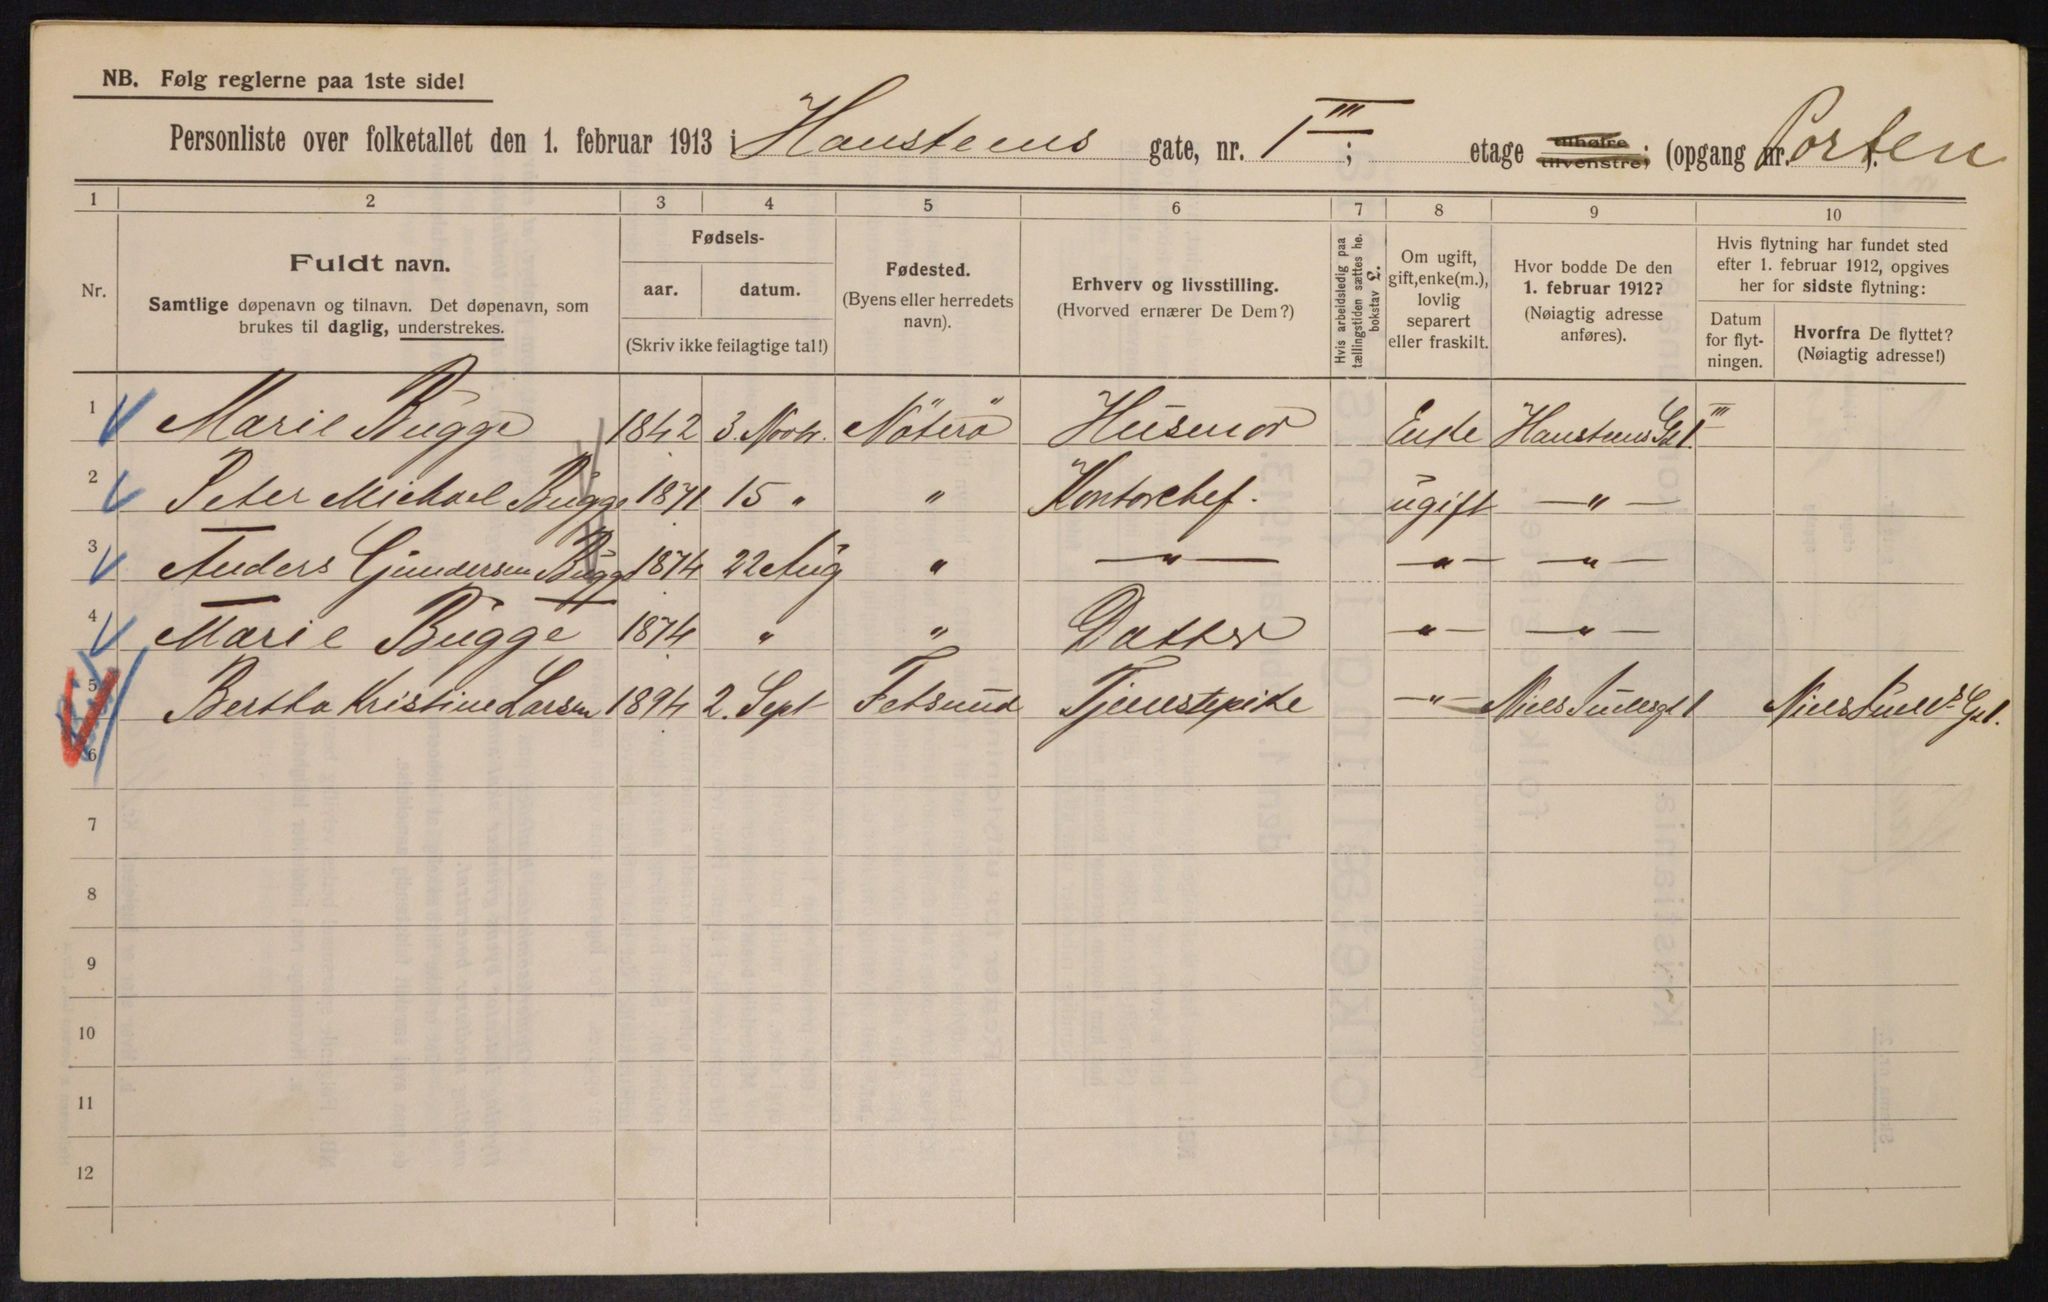 NB. Følg reglerne paa 1ste side!
Personliste over folketallet den 1. februar 1913 i Hansteens gate, nr. 1 III; etage tilhøire tilvenstre; (opgang nr. Porten ).
1 2 3 4 5 6 7 8 9 10
Nr.
Fuldt navn.
Samtlige døpenavn og tilnavn. Det døpenavn, som
brukes til daglig, understrekes.
Fødsels-
aar. datum.
(Skriv ikke feilagtige tal!)
Fødested.
(Byens eller herredets
navn).
Erhverv og livsstilling.
(Hvorved ernærer De Dem?)
Hvis arbeidsledig paa
tællingstiden sættes he.
bokstav L.
Om ugift,
gift, enke(m.),
lovlig
separert
eller fraskilt.
Hvor bodde De den
1. februar 1912?
(Nøiagtig adresse
anføres).
Hvis flytning har fundet sted
efter 1. februar 1912, opgives
her for sidste flytning:
Datum
for flyt-
ningen.
Hvorfra De flyttet?
(Nøiagtig adresse!)
1 Marie Bugge 1842 3. Novbr. Nöterö Husmor Enke Hansteens Gt 1 III
2 Peter Michael Bugge 1871 15 " " Kontorchef. ugift — " —
3 Anders Gundersen Bugge 1874 22 Aug " — " — — " — — " —
4 Marie Bugge 1874 " " Datter — " — — " —
5 Bertha Kristine Larsen 1894 2. Sept Fetsund Tjenstepike — " — Niels Juels gt 1 Niels Juels Gt 1.
6
7
8
9
10
11
12